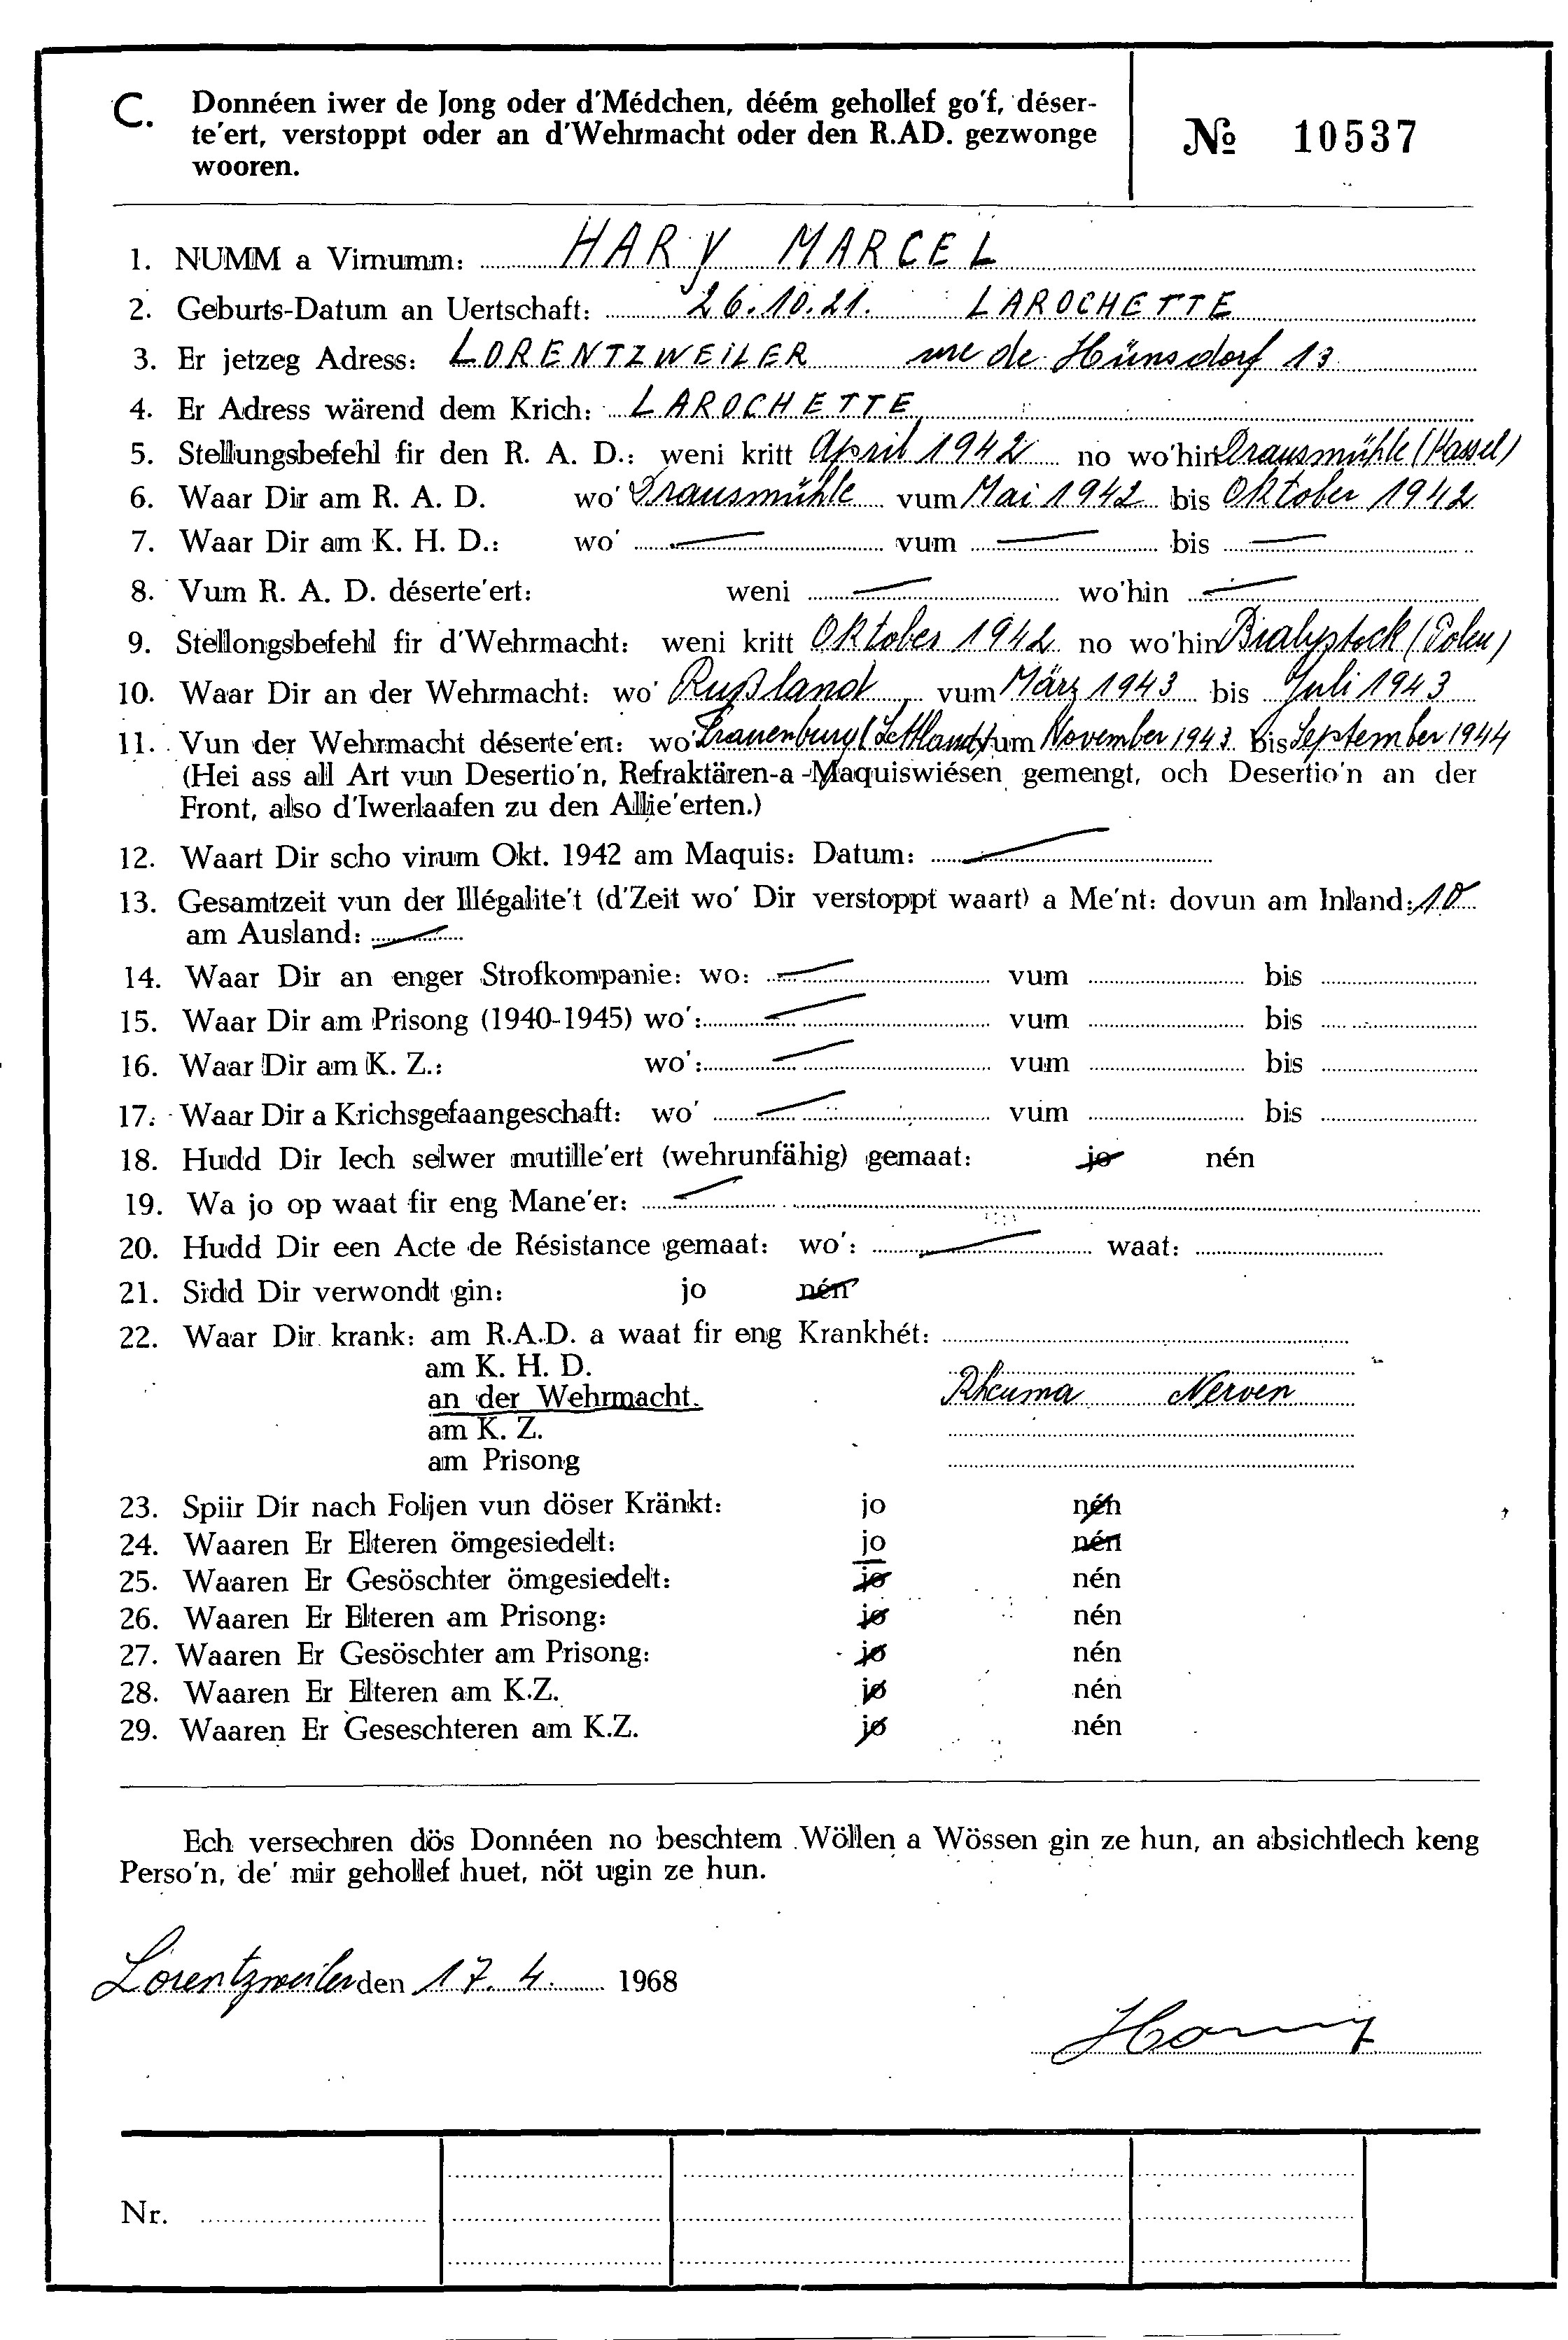 C. Donnéen iwer de Jong oder d'Médchen, déém gehollef go'f, déser-
te'ert, verstoppt oder an d'Wehrmacht oder den R.AD. gezwonge
wooren.
№ 10537
1. NUMM a Virnumm: HARY MARCEL
2. Geburts-Datum an Uertschaft: 26.10.21. LAROCHETTE
3. Er jetzeg Adress: LORENTZWEILER rue de Hünsdorf 13
4. Er Adress wärend dem Krich: LAROCHETTE
5. Stellungsbefehl fir den R. A. D.: weni kritt April 1942 no wo'hin Drausmühle (Kassel)
6. Waar Dir am R. A. D. wo' Drausmühle vum Mai 1942 bis Oktober 1942
7. Waar Dir am K. H. D.: wo' — vum — bis —
8. Vum R. A. D. déserte'ert: weni — wo'hin —
9. Stellongsbefehl fir d'Wehrmacht: weni kritt Oktober 1942 no wo'hin Bialystock (Polen)
10. Waar Dir an der Wehrmacht: wo' Rußland vum März 1943 bis Juli 1943
11. Vun der Wehrmacht déserte'ert: wo' Frauenburg (Lettland) vum November 1943 bis September 1944
(Hei ass all Art vun Desertio'n, Refraktären-a -Maquiswiésen gemengt, och Desertio'n an der
Front, also d'Iwerlaafen zu den Allie'erten.)
12. Waart Dir scho virum Okt. 1942 am Maquis: Datum: —
13. Gesamtzeit vun der Illégalite't (d'Zeit wo' Dir verstoppt waart) a Me'nt: dovun am Inland: 10
am Ausland: —
14. Waar Dir an enger Strofkompanie: wo: — vum bis
15. Waar Dir am Prisong (1940-1945) wo': — vum bis
16. Waar Dir am K. Z.: wo': — vum bis
17. Waar Dir a Krichsgefaangeschaft: wo' — vum bis
18. Hudd Dir Iech selwer mutille'ert (wehrunfähig) gemaat: jo nén
19. Wa jo op waat fir eng Mane'er: —
20. Hudd Dir een Acte de Résistance gemaat: wo': — waat:
21. Sidd Dir verwondt gin: jo nén
22. Waar Dir krank: am R.A.D. a waat fir eng Krankhét:
am K. H. D.
an der Wehrmacht. Rheuma Nerven
am K. Z.
am Prisong
23. Spiir Dir nach Foljen vun döser Kränkt: jo nén
24. Waaren Er Elteren ömgesiedelt: jo nén
25. Waaren Er Gesöschter ömgesiedelt: jo nén
26. Waaren Er Elteren am Prisong: jo nén
27. Waaren Er Gesöschter am Prisong: jo nén
28. Waaren Er Elteren am K.Z. jo nén
29. Waaren Er Geseschteren am K.Z. jo nén
Ech versechren dös Donnéen no beschtem Wöllen a Wössen gin ze hun, an absichtlech keng
Perso'n, de' mir gehollef huet, nöt ugin ze hun.
Lorentzweiler den 17. 4. 1968
Hary
Nr.